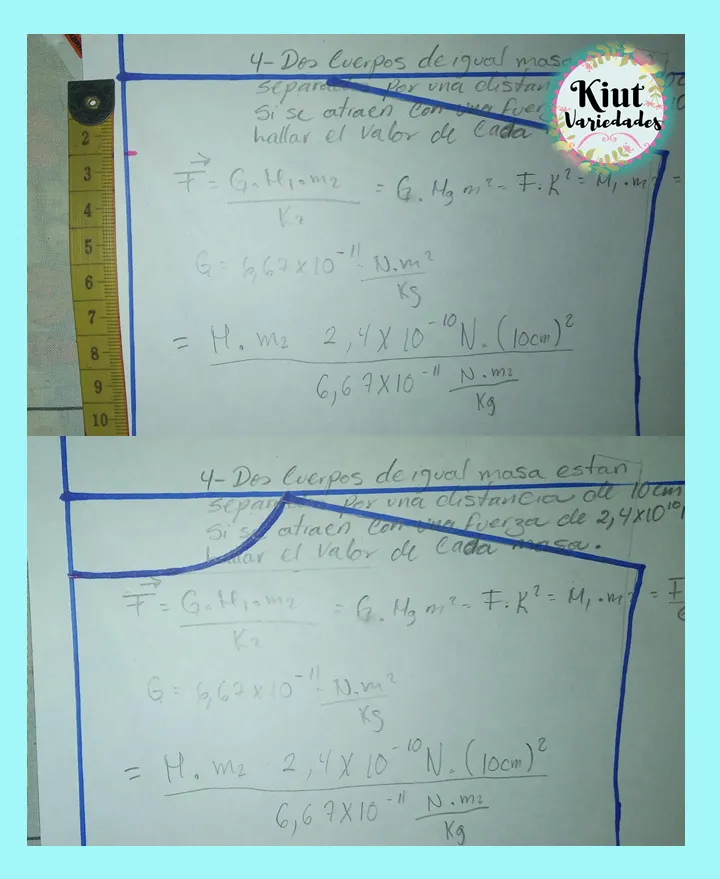 4- Dos Cuerpos de igual masa
separados por una distan
Si se atraen con una fuer
hallar el valor de Cada
Kiut
Variedades
F = G. M1. m2 = G. Mg m² = F. K² = M1 . m² =
K2
G = 6,67 x 10⁻¹¹ N.m²
Kg
= M. m2 2,4 X 10⁻¹⁰ N. (10cm)²
6,67X10⁻¹¹ N.m2
Kg
2
3
4
5
6
7
8
9
10
4- Dos Cuerpos de igual masa estan
separados por una distancia de 10cm
Si se atraen con una fuerza de 2,4X10¹⁰
hallar el valor de Cada masa.
F = G. M1. m2 = G. Mg m² = F. K² = M1 . m² = F
K2
G = 6,67 x 10⁻¹¹ N.m²
Kg
= M. m2 2,4 X 10⁻¹⁰ N. (10cm)²
6,67X10⁻¹¹ N.m2
Kg